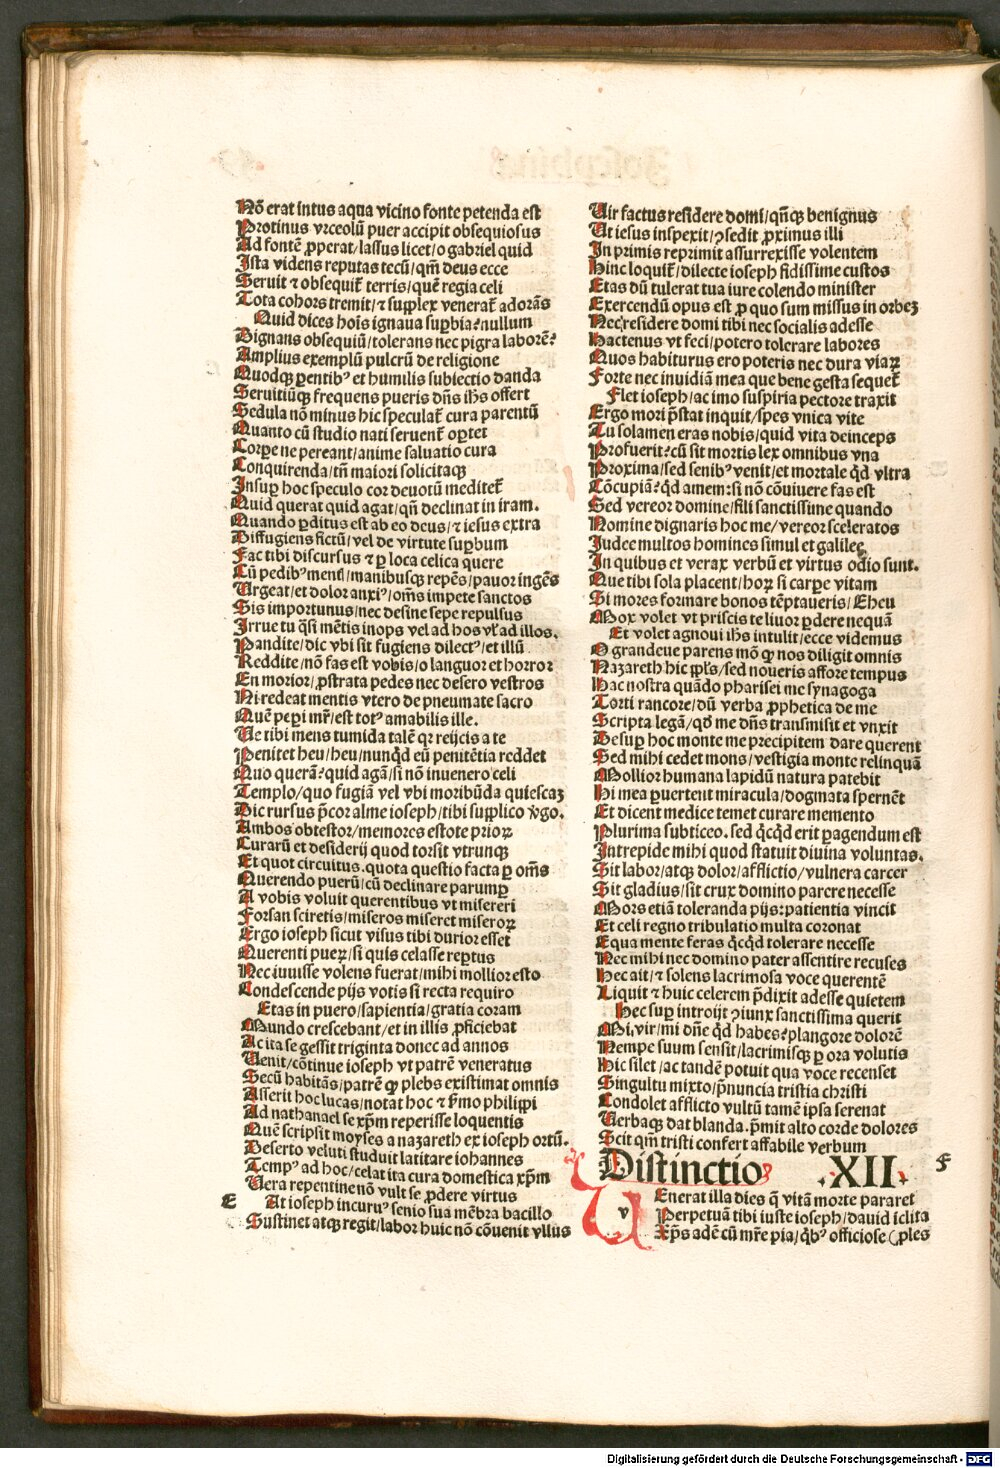 Nõ erat intus aqua vicino fonte petenda est
Protinus vrceolũ puer accipit obsequiosus
Ad fontẽ ꝓperat/lassus licet/o gabriel quid
Ista videns reputas tecũ/qm̃ deus ecce
Seruit ⁊ obsequit᷑ terris/quẽ regia celi
Tota cohors tremit/⁊ supplex venerat᷑ adorãs
Quid dices hoĩs ignaua suꝑbia?nullum
Dignans obsequiũ/tolerans nec pigra laborẽ?
Amplius exemplũ pulcrũ de religione
Quodqꝫ ꝑentibꝰ et humilis subiectio danda
Seruitiũqꝫ frequens pueris dñs ihs̃ offert
Sedula nõ minus hic speculat᷑ cura parentũ
Quanto cũ studio nati seruent᷑ oꝑtet
Corꝑe ne pereant/anime saluatio cura
Conquirenda/tñ maiori solicitaqꝫ
Insuꝑ hoc speculo cor deuotũ meditet᷑
Quid querat quid agat/qñ declinat in iram.
Quando ꝑditus est ab eo deus/⁊ iesus extra
Diffugiens fictũ/vel de virtute suꝑbum
Fac tibi discursus ⁊ ꝑ loca celica quere
Cũ pedibꝰ menť/manibusqꝫ repẽs/pauor ingẽs
Urgeat/et dolor anxiꝰ/om̃s impete sanctos
Sis importunus/nec desine sepe repulsus
Irrue tu q̃si mẽtis inops vel ad hos vľ ad illos.
Pandite/dic vbi sit fugiens dilectꝰ/et illũ
Reddite/nõ fas est vobis/o languor et horror
En morior/ꝓstrata pedes nec desero vestros
Ni redeat mentis vtero de pneumate sacro
Quẽ peꝑi mr̃/est totꝰ amabilis ille.
Ue tibi mens tumida talẽ qꝫ reijcis a te
Penitet heu/heu/nunq̃d eũ penitẽtia reddet
Quo querã?quid agã/si nõ inuenero celi
Templo/quo fugiã vel vbi moribũda quiescaꝫ
Dic rursus p̃cor alme ioseph/tibi supplico v̾go.
Ambos obtestor/memores estote prioꝝ
Curarũ et desiderij quod torsit vtrunqꝫ
Et quot circuitus.quota questio facta ꝑ om̃s
Querendo puerũ/cũ declinare parumꝑ
A vobis voluit querentibus vt misereri
Forsan sciretis/miseros miseret miseroꝝ
Ergo ioseph sicut visus tibi durior esset
Querenti pueꝝ/si quis celasse reꝑtus
Nec iuuisse volens fuerat/mihi mollior esto
Condescende pijs votis si recta requiro
Etas in puero/sapientia/gratia coram
Mundo crescebant/et in illis ꝓficiebat
Ac ita se gessit triginta donec ad annos
Uenit/cõtinue ioseph vt patrẽ veneratus
Secũ habitãs/patrẽ qꝫ plebs existimat omnis
Asserit hoc lucas/notat hoc ⁊ ṽmo philippi
Ad nathanael se xp̃m reperisse loquentis
Quẽ scripsit moyses a nazareth ex ioseph ortũ.
Deserto veluti studuit latitare iohannes
Tempꝰ ad hoc/celat ita cura domestica xp̃m
Uera repentine nõ vult se ꝓdere virtus
E At ioseph incuruꝰ senio sua mẽbra bacillo
Sustinet atqꝫ regit/labor huic nõ cõuenit vllus
Uir factus residere domi/qñqꝫ benignus
Ut iesus inspexit/ꝯsedit ꝓximus illi
In primis reprimit assurrexisse volentem
Hinc loquit᷑/dilecte ioseph fidissime custos
Etas dũ tulerat tua iure colendo minister
Exercendũ opus est ꝓ quo sum missus in orbeꝫ
Nec residere domi tibi nec socialis adesse
Hactenus vt feci/potero tolerare labores
Quos habiturus ero poteris nec dura viaꝝ
Forte nec inuidiã mea que bene gesta sequet᷑
Flet ioseph/ac imo suspiria pectore traxit
Ergo mori p̃stat inquit/spes vnica vite
Tu solamen eras nobis/quid vita deinceps
Profuerit?cũ sit mortis lex omnibus vna
Proxima/sed senibꝰ venit/et mortale q̃d vltra
Cõcupiã?q̃d amem:si nõ cõuiuere fas est
Sed vereor domine/fili sanctissime quando
Nomine dignaris hoc me/vereor sceleratos
Judee multos homines simul et galilee
In quibus et verax verbũ et virtus odio sunt.
Que tibi sola placent/hoꝝ si carꝑe vitam
Si mores formare bonos tẽptaueris/Eheu
Mox volet vt priscis te liuor ꝑdere nequã
Et volet agnoui ihs̃ intulit/ecce videmus
O grandeue parens mõ qꝫ nos diligit omnis
Nazareth hic pp̃ls/sed noueris affore tempus
Hac nostra quãdo pharisei me synagoga
Torti rancore/dũ verba ꝓphetica de me
Scripta legã/qđ me dñs transmisit et vnxit
Desuꝑ hoc monte me precipitem dare querent
Sed mihi cedet mons/vestigia monte relinquã
Mollior humana lapidũ natura patebit
Hi mea ꝑuertent miracula/dogmata spernẽt
Et dicent medice temet curare memento
Plurima subticeo.sed q̃cq̃d erit ꝑagendum est
Intrepide mihi quod statuit diuina voluntas.
Sit labor/atqꝫ dolor/afflictio/vulnera carcer
Sit gladius/sit crux domino parcre necesse
Mors etiã toleranda pijs:patientia vincit
Et celi regno tribulatio multa coronat
Equa mente feras q̃cq̃d tolerare necesse
Nec mihi nec domino pater assentire recuses
Hec ait/⁊ solens lacrimosa voce querentẽ
Liquit ⁊ huic celerem p̃dixit adesse quietem
Hec suꝑ introijt ꝯiunx sanctissima querit
Mi,vir/mi dñe q̃d habes?plangore dolorẽ
Nempe suum sensit/lacrimisqꝫ ꝑ ora volutis
Hic silet/ac tandẽ potuit qua voce recenset
Singultu mixto/p̃nuncia tristia christi
Condolet afflicto vultũ tamẽ ipsa serenat
Uerbaqꝫ dat blanda.p̃mit alto corde dolores
Scit qm̃ tristi confert affabile verbum
Distinctio .XII. F
v Enerat illa dies q̃ vitã morte pararet
Perpetuã tibi iuste ioseph/dauid iclita
Xp̃s adẽ cũ mr̃e pia/q̃bꝰ officiose (ꝓles
Digitalisierung gefördert durch die Deutsche Forschungsgemeinschaft - DFG